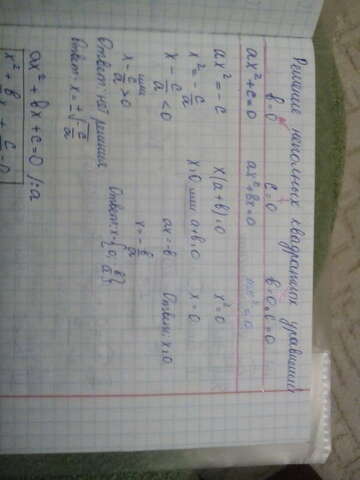 Решение неполных квадратных уравнений
b=0 c=0 b=0, c=0
ax²+c=0 ax²+bx=0 ax²=0
ax²=-c x(a+b)=0 x²=0
x²=-c/a x=0 или a+b=0 x=0
x-c/a<0 ax=-b Ответ: x=0
или x=-b/a
x-c/a>0 Ответ: x={0, b/a}
Ответ: нет решения
Ответ: x=±√-c/a
ax²+bx+c=0 /:a